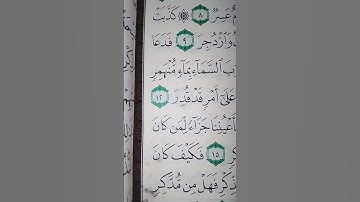 عَسِرٌ ٨ ۞ كَذَّبَتْ
وَازْدُجِرَ ٩ فَدَعَا
السَّمَاءِ بِمَاءٍ مُّنْهَمِرٍ
عَلَىٰ أَمْرٍ قَدْ قُدِرَ ١٢
بِأَعْيُنِنَا جَزَاءً لِّمَن كَانَ
١٥ فَكَيْفَ كَانَ
فَهَلْ مِن مُّدَّكِرٍ